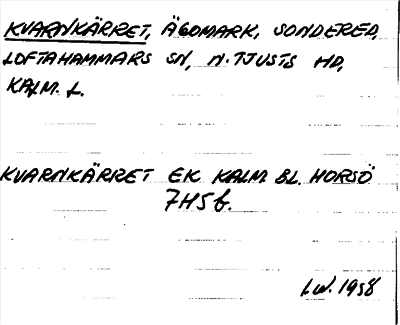 KVARNKÄRRET, ÄGOMARK, SONDERED,
LOFTAHAMMARS SN, N. TJUSTS HD,
KALM. L.
KVARNKÄRRET EK KALM. BL. HORSÖ
7H5f.
I.W. 1958